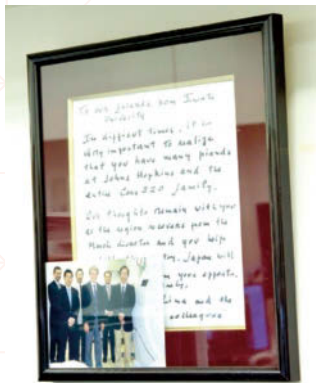 To our friends from Iwate
University
In difficult times, it is
very important to realize
that you have many friends
at Johns Hopkins and the
entire Core 220 family.
Our thoughts remain with you
as the region recovers from the
March disaster and you help
Japan will
your
and the
colleagues